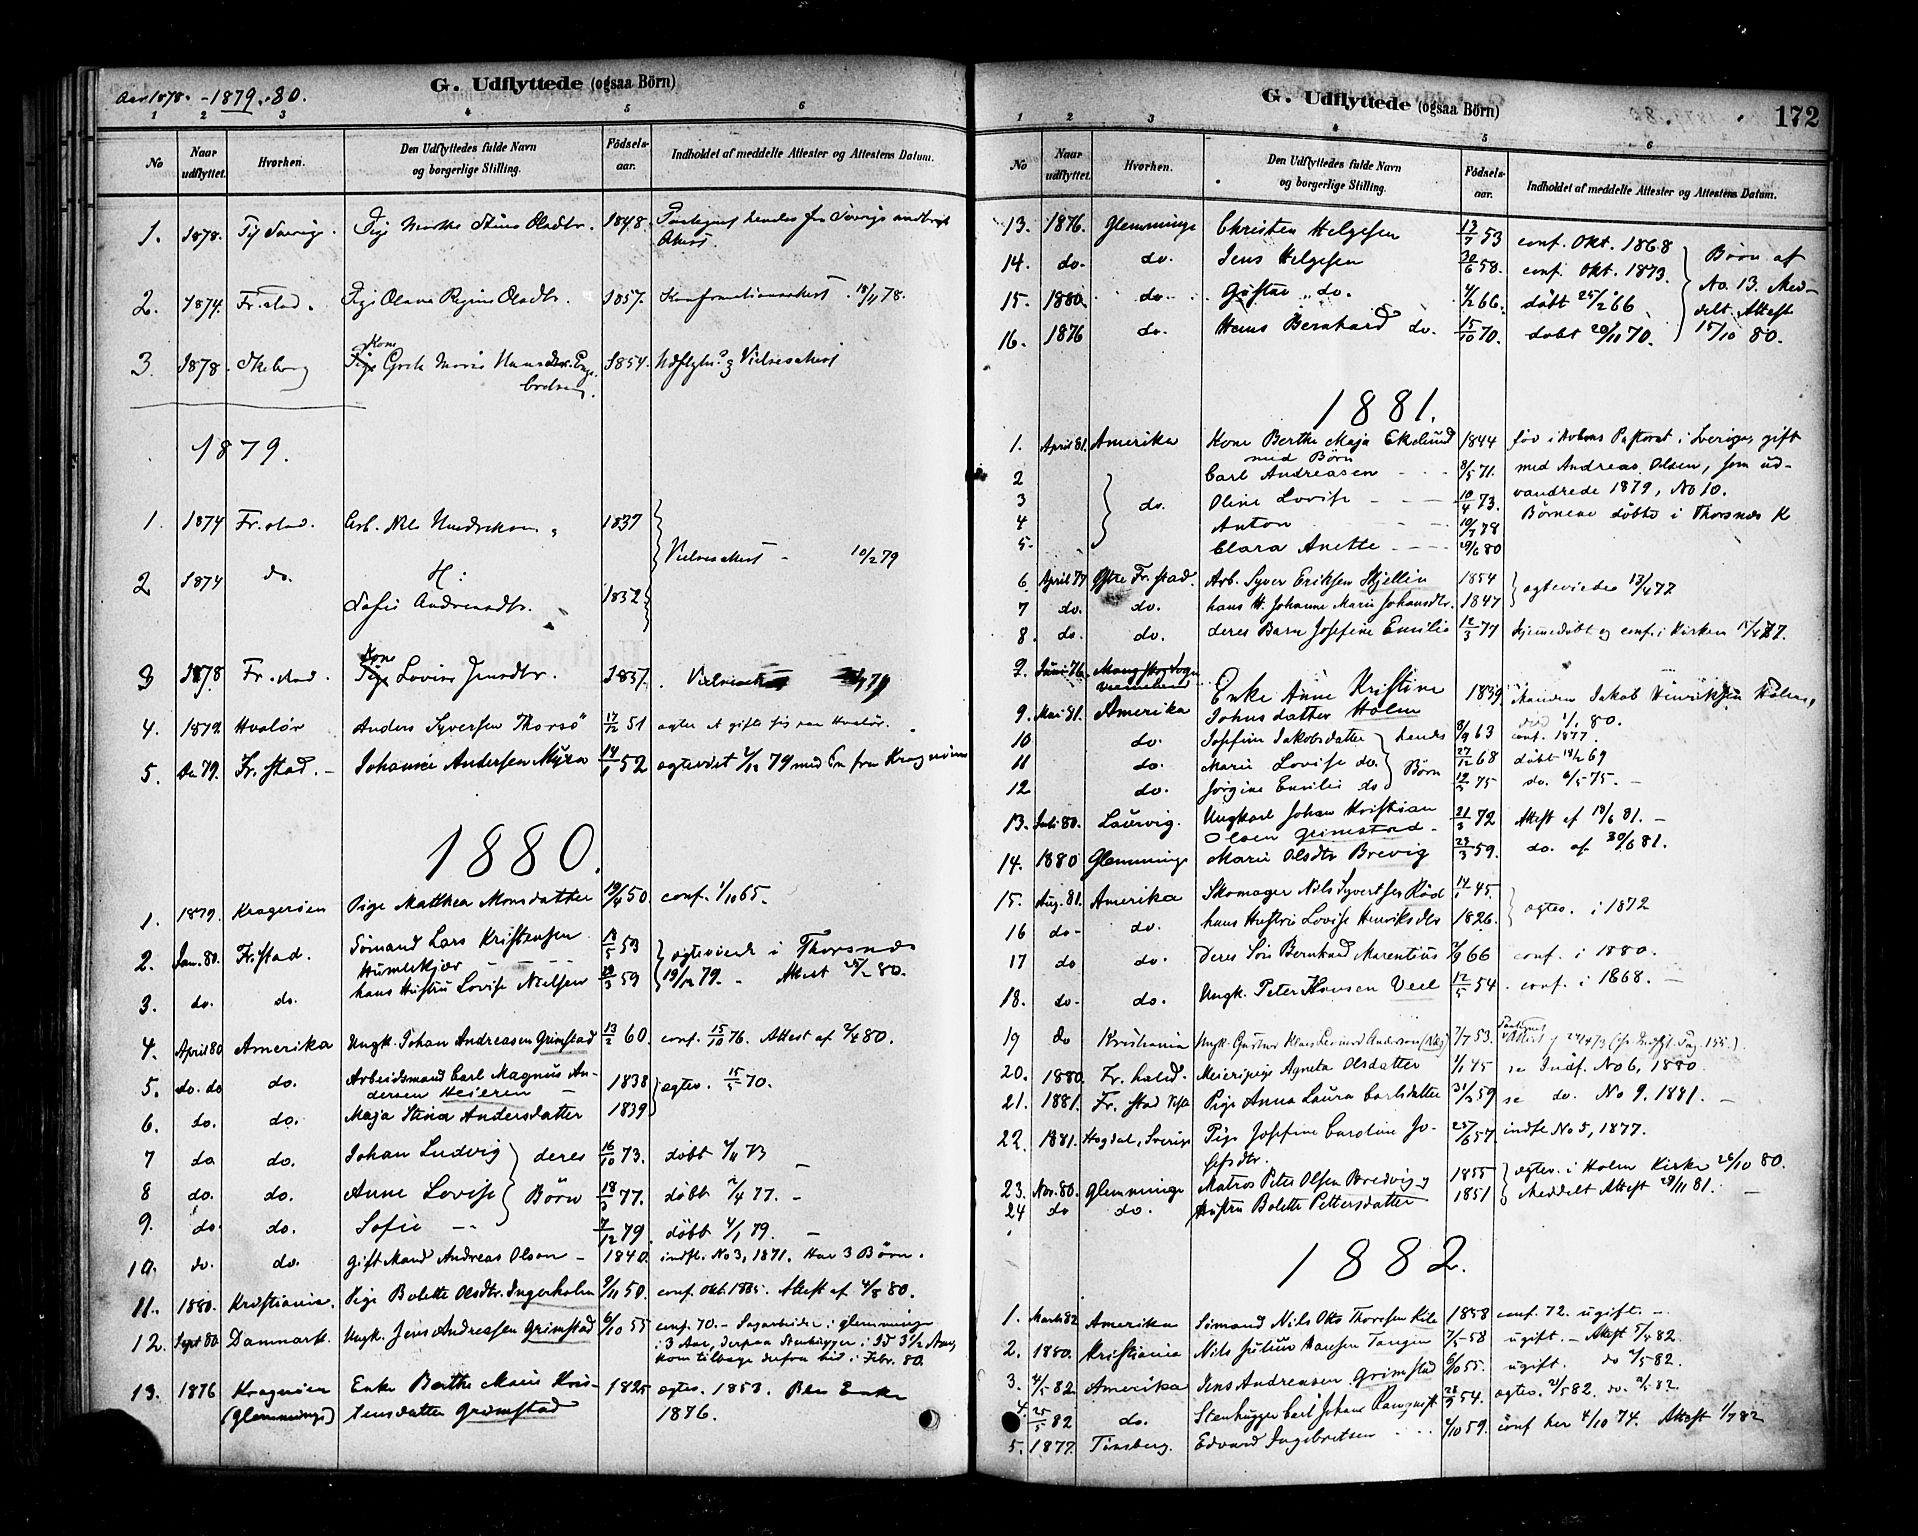 Aar 1878. -1879.-80.
G. Udflyttede (ogsaa Börn)
1 2 3 4 5 6
No
Naar udflyttet.
Hvorhen.
Den Udflyttedes fulde Navn og borgerlige Stilling.
Födsels-aar.
Indholdet af meddelte Attester og Attestens Datum.
1. 1878. Til Sverig. Pige Marthe Stine Olsdtr. 1848.
2. 1874. Fr.stad. Pige Olava Regine Olsdtr. 1857. Konfirmationsattest 18/11 78.
3. 1878. Skeberg Kone Grethe Marie 1854. Vielsesattest
1879.
1. 1874 Fr.stad. Arb. Nils 1837
Vielsesattest - 10/2 79
2 1874 do. H:
Sofie Andreasdtr. 1832
3 1878. Fr.stad. Kone Lovise Jensdtr. 1837. Vielsesattest 79
4. 1879. Hvalør Anders Syversen Thorsø 17/12 51 agter at gifte sig paa Hvalør.
5. De 79. Fr.stad. - Johannes Andersen Myra 14/1 52 ægteviet 79 med En fra Kragerøen
1880.
1. 1879. Kragerøen Pige Mathea Monsdatter 19/4 50. conf. 1/10 65.
2. Jan. 80. Fr.stad. Sømand Lars Kristensen 13/5 53 ægteviede i Thorsnæs
Humlekjær
3. do. do. hans Hustru Lovise Nielsen 59 19/12 79. - Attest 25/2 80.
4. April 80 Amerika Ungk. Johan Andreasen Grimstad 13/2 60. conf. 15/10 76. Attest af 2/4 80.
5. do. do do. Arbeidsmand Carl Magnus An-
dersen Heieren 1838 ægtev. 15/5 70.
6. do. do. Maja Stina Andersdatter 1839
7 do do. Johan Ludvig deres 16/10 73. döbt 2/11 73
8 do. do. Anne Lovise Börn 18/3 77. döbt 2/4 77. -
9. do. do. Sofie - 7/12 79. döbt 4/1 79. -
10. do. do. gift Mand Andreas Olsen - 1840. indfl. No 3, 1871. Har 3 Börn.
11. 1880. Kristiania. Pige Bolette Olsdtr. Ingerholm 9/11 50. conf. Okt. 1865. Attest af 4/8 80.
12. Sept 80 Danmark. Ungk. Jens Andreasen Grimstad 6/10 55 conf. 70. - Sagarbeider i Glemminge
i 3 Aar, derpaa Stenhugger i Id 3 1/2 Aar,
kom tilbage derfra hid i Febr. 80.
13. 1876 Kragerøen Enke Berthe Marie Kris- 1825 ægtev. 1853. Blev Enke
(Glemminge) tensdatter Grimstad 1876.
G. Udflyttede (ogsaa Börn)
172
1 2 3 4 5 6
No
Naar udflyttet.
Hvorhen.
Den Udflyttedes fulde Navn og borgerlige Stilling.
Födsels-aar.
Indholdet af meddelte Attester og Attestens Datum.
13. 1876. Glemminge Christen Helgesen 53 conf. Okt. 1868
14. do. do. Jens Helgesen 30/6 58. conf. Okt. 1873.
15. 1880. do. Gustav do. 4/12 66. döbt 25/12 66
16. 1876 do. Hans Bernhard do. 15/10 70. döbt 20/11 70.
Börn af
No. 13. Med-
delt Attest
15/10 80.
1881.
1. April 81. Amerika Kone Berthe Maja Eklund 1844 föd i Pastorat i Sverige, gift
med Börn
2 Carl Andreasen - - 8/5 71. med Andreas Olsen, som ud-
3 do. Oline Lovise - - 10/4 73. vandrede 1879, No 10.
4 Anton - - 10/7 78 Börnene döbte i Thorsnæs K
5. Clara Anette - - 29/6 80
6 April 77 Östre Fr.stad. Arb. Syver Eriksen Kjellin 1854 ægteviedes 13/4 77
7 do. do. hans H. Johanne Marie Johansdtr. 1847
8. do. do. deres Barn Josefine Emilie 12/3 77 hjemmedöbt og conf. i Kirken 15/4 77.
9. Juni 76.
9. Mai 81. Amerika Enke Anne Kristine 1839 Manden Jakob Henriksen Holm,
Johnsdatter Holm död 1/1 80.
10 do. Josefine Jakobsdatter hendes 8/9 63 conf. 1877.
11 do. Marie Lovise do. Börn 27/12 68 döbt 14/2 69
12 do. Jörgine Emilie do 19/3 75 do. 6/5 75. -
13. Juli 80. Laurvig. Ungkarl Johan Kristian 21/3 72 Attest af 18/6 81. -
Olsen Grimstad.
14. 1880 Glemminge Marie Olsdtr Brevig 23/3 59. do. af 30/6 81.
15. Aug. 81. Amerika Skomager Nils Syvertsen Röd 14/1 45 ægtev. i 1872
16 do. do. hans Hustru Lovise Henriksdtr 1826.
17 do do. Deres Sön Bernhard Marentius 7/9 66 conf. i 1880.
18. do. do. Ungk. Peter Hansen Veel 12/5 54 conf. i 1868. -
19 do Kristiania Ungk. Gustav 7/7 53.
20. 1880. Fr.hald. Meieripige Agneta Olsdatter 1/1 45 se Indf. No 6, 1880.
21. 1881. Fr.stad Vestre Pige Anna Laura Carlsdatter 31/12 59 se do. No 9. 1881. -
22. 1881. Hogdal, Sverige Pige Josefine Caroline Jo- 25/6 57 indfl. No 5, 1877.
sefsdtr.
23. Nov. 80. Glemminge Matros Peter Olsen Bredvig, og 1855 ægtev. i Holm Kirke 26/10 80.
24 do do. Hustru Bolette Pettersdatter 1851 Meddelt Attest 29/11 81. -
1882.
1. Marts 82 Amerika Sömand Nils Otto Thoresen Kile 1858 conf. 72. ugift. -
2. 1880. Kristiania Nils Julius Hansen Tangen 7/5 58 ugift. - Attest 5/4 82.
3. 4/5 82 Amerika Jens Andreasen Grimstad 6/10 55. ugift. do 2/5 82.
4. 25/5 82 do. Stenhugger Carl Johan Ramqvist 28/9 54. ægtev. 2/5 82. do. 2/5 82
5. 1877. Tönsberg. Edvard Ingebretsen - - 2/10 59. conf her 4/10 74. Attest 1/7 82